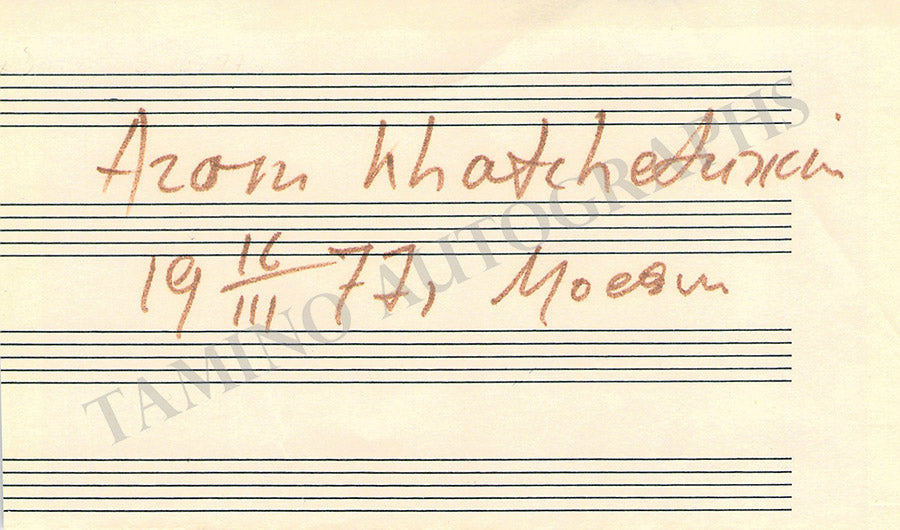 Aram Khatchaturian
19 16/III 77, Moscou
TAMINO AUTOGRAPHS